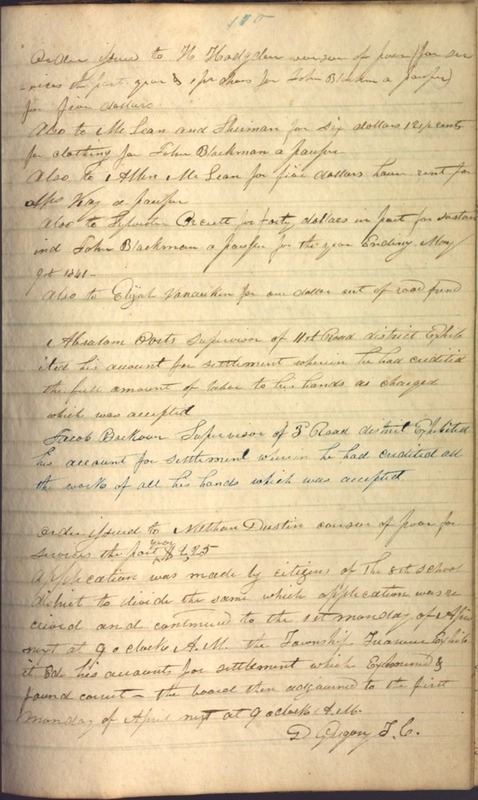 170
Order issued to H Hodgden overseer of poor (for ser
vices the past year & for John Blackman a pauper)
for four dollars
Also to McLean and Sherman for six dollars 12½ cents
for clothing for John Blackman a pauper
Also to Allen McLean for five dollars house rent for
Mrs Kay a pauper
Also to Sylvester for forty dollars in part for sustain
ing John Blackman a pauper for the year Ending May
9th 1841 -
Also to Elijah Vanauken for one dollar out of road fund
Abraham Oorts Supervisor of 11st Road district Exhib
ited his account for settlement wherein he had credited
the full amount of labor to his hands as charged
which was accepted
Jacob Supervisor of 3d Road district Exhibited
his account for settlement wherein he had credited all
the work of all his hands which was accepted
Order issued to Nathan Dustin overseer of poor for
services the past year $1,25
Application was made by citizens of the 8st school
district to divide the same which application was re
ceived and continued to the 1st monday of April
next at 9 oclock A.M. the Township Treasurer Exhib
ited his accounts for settlement which Examined &
found correct - the board then adjourned to the first
monday of April next at 9 oclock A.M.
D Gregory T. C.